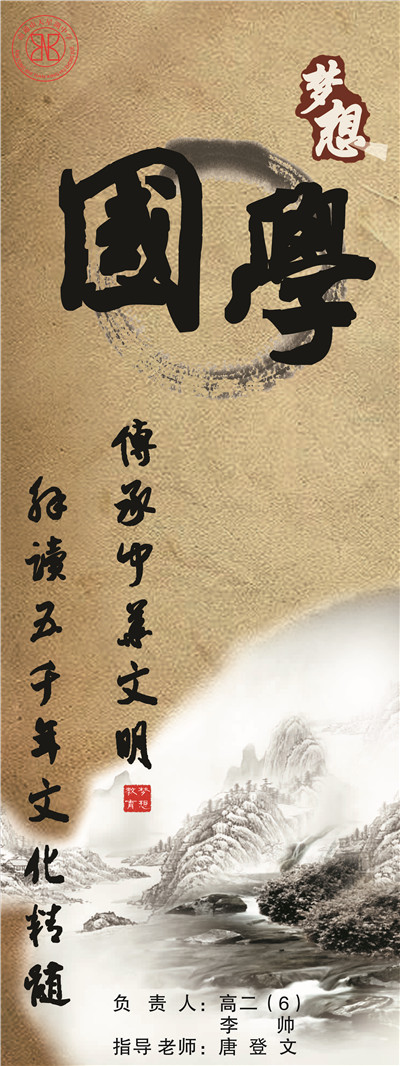 梦想
國學
傳承中華文明
解讀五千年文化精髓
梦想
教育
负责人：高二（6）
李帅
指导老师：唐登文